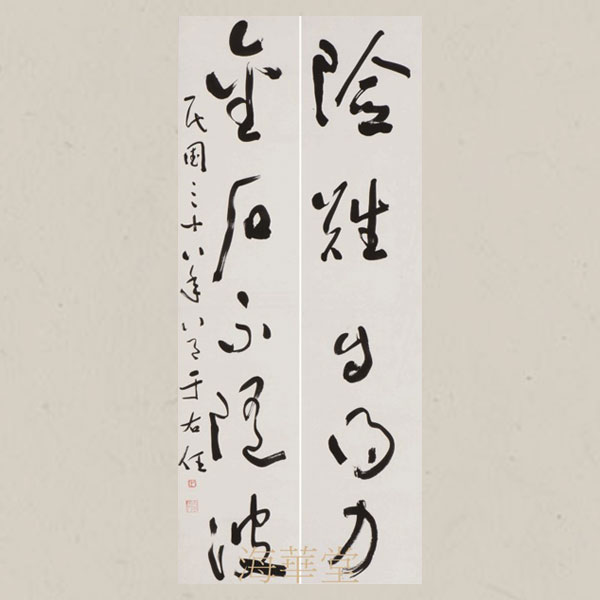 險難自得力
金石不隨波
民國三十八年八月于右任
海華堂